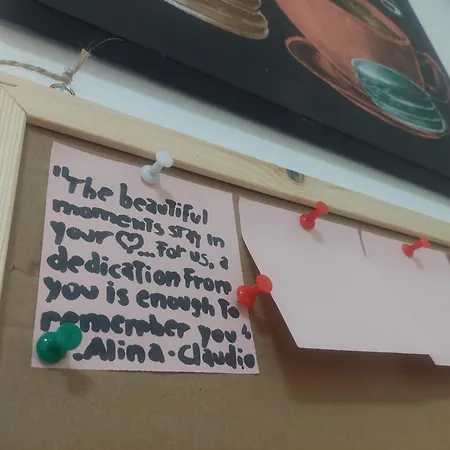 "The beautiful
moments stay in
your ♡... For us, a
dedication From
you is enough to
remember you
.Alina - Claudio